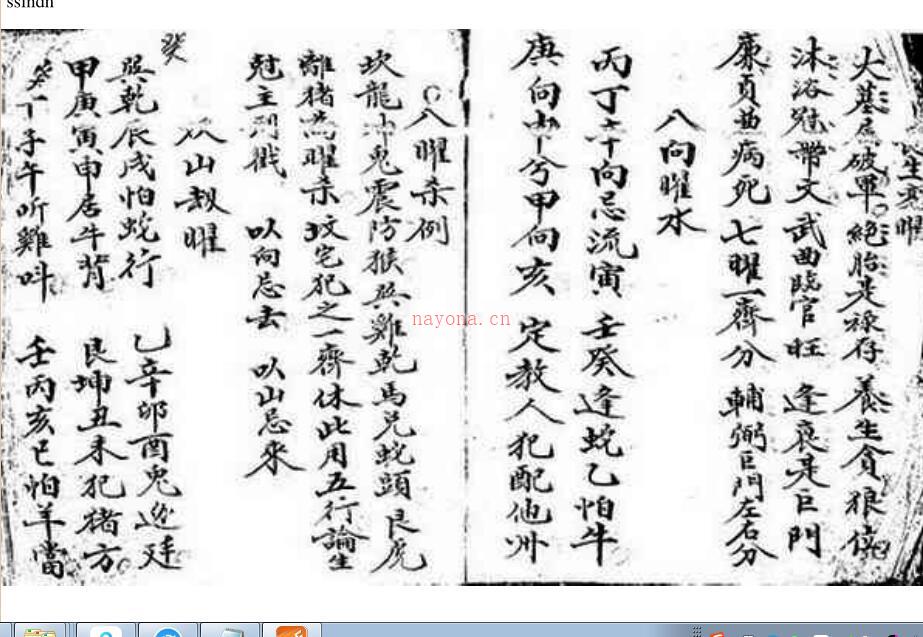 長生裏曜
火墓是破軍 絕胎是祿存 養生貪狼位
沐浴冠帶文 武曲臨官旺 逢衰是巨門
廉貞曲病死 七曜一齊分 輔弼巨門左右分
八向曜水
丙丁向忌流寅 壬癸逢蛇乙怕牛
庚向兮甲向亥 定教人犯配他州
八曜杀例
坎龍兔震防猴 巽雞乾馬兑蛇頭 艮虎
離猪為曜杀 坟宅犯之一齊休 此用五行論生
尅主 以向忌去 以山忌來
山刼曜
癸
巽乾辰戌怕蛇行 乙辛卯酉鬼
甲庚寅申居牛背 艮坤丑未犯猪方
癸丁子午听雞叫 壬丙亥巳怕羊當
nayona.cn